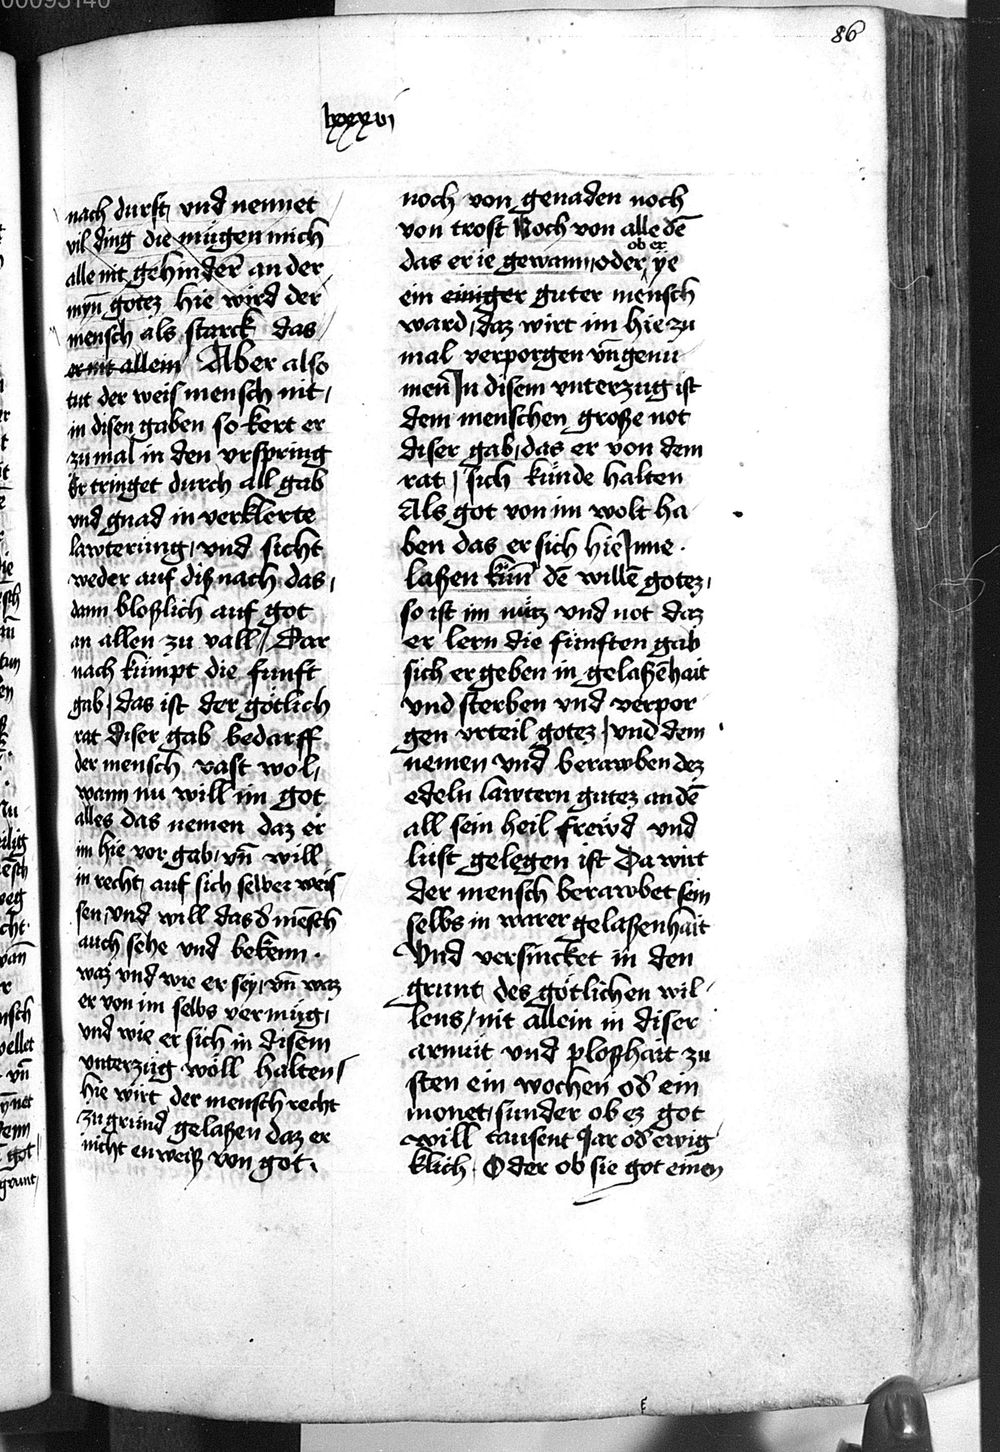 00093140
86
lxxxvi
nach durst und nennet
vil ding die mügen mich
alle nit gehindeꝛ̄ an der
myn̄ gotez hie wird der
mensch als starck das
er nit allein Aber also
tut der weis mensch nit,
in disen gaben so kert er
zu mal in den vrspring
Er tringet durch all gab
vnd gnad in verklerte
lawterung, vnd sicht
weder auf diß nach das,
dann bloßlich auf got
an allen zu vall / Dar
nach kümpt die funft
gab, das ist der götlich
rat diser gab bedarff
der mensch vast wol,
wann nu will im got
alles das nemen daz er
im hie vor gab, vn̄ will
in recht auf sich selber weis
sen, vnd will das d᷑ mēsch
auch sehe vnd bekenn.
waz vnd wie er sey, vn̄ waz
er von im selbs vermüg,
vnd wie er sich in disem
unterzüg wöll halten /
hie wirt der mensch recht
zu grund gelaßen daz er
nicht enweiß von got.
noch von genaden noch
von trost Noch von alle dē
ob er
das er ie gewann, oder ye
ein einiger guter mensch
ward, daz wirt im hie zu
mal verporgen vn̄ genu
men In disem vnterzug ist
dem menschen große not
diser gab, das er von dem
rat, sich künde halten
Als got von im wolt ha
ben das er sich hie Inne.
laßen kün̄ dē willē gotez,
so ist im nütz vnd not daz
er lern die fünften gab
sich ergeben in gelaßēhait
vnd sterben vnd verpor
gen vrteil gotez, vnd dem
nemen vnd berawben dez
edeln lawtern gutez an dē
all sein heil frewd vnd
lust gelegen ist Da wirt
der mensch berawbet sein
selbs in warer gelaßenhait
Vnd versincket in den
grunt des götlichen wil
lens, nit allein in diser
armüt vnd ploßhait zu
sten ein wochen od᷑ ein
monet, sunder ob ez got
will tausent Jar od᷑ ewig
klich. Oder ob sie got einen